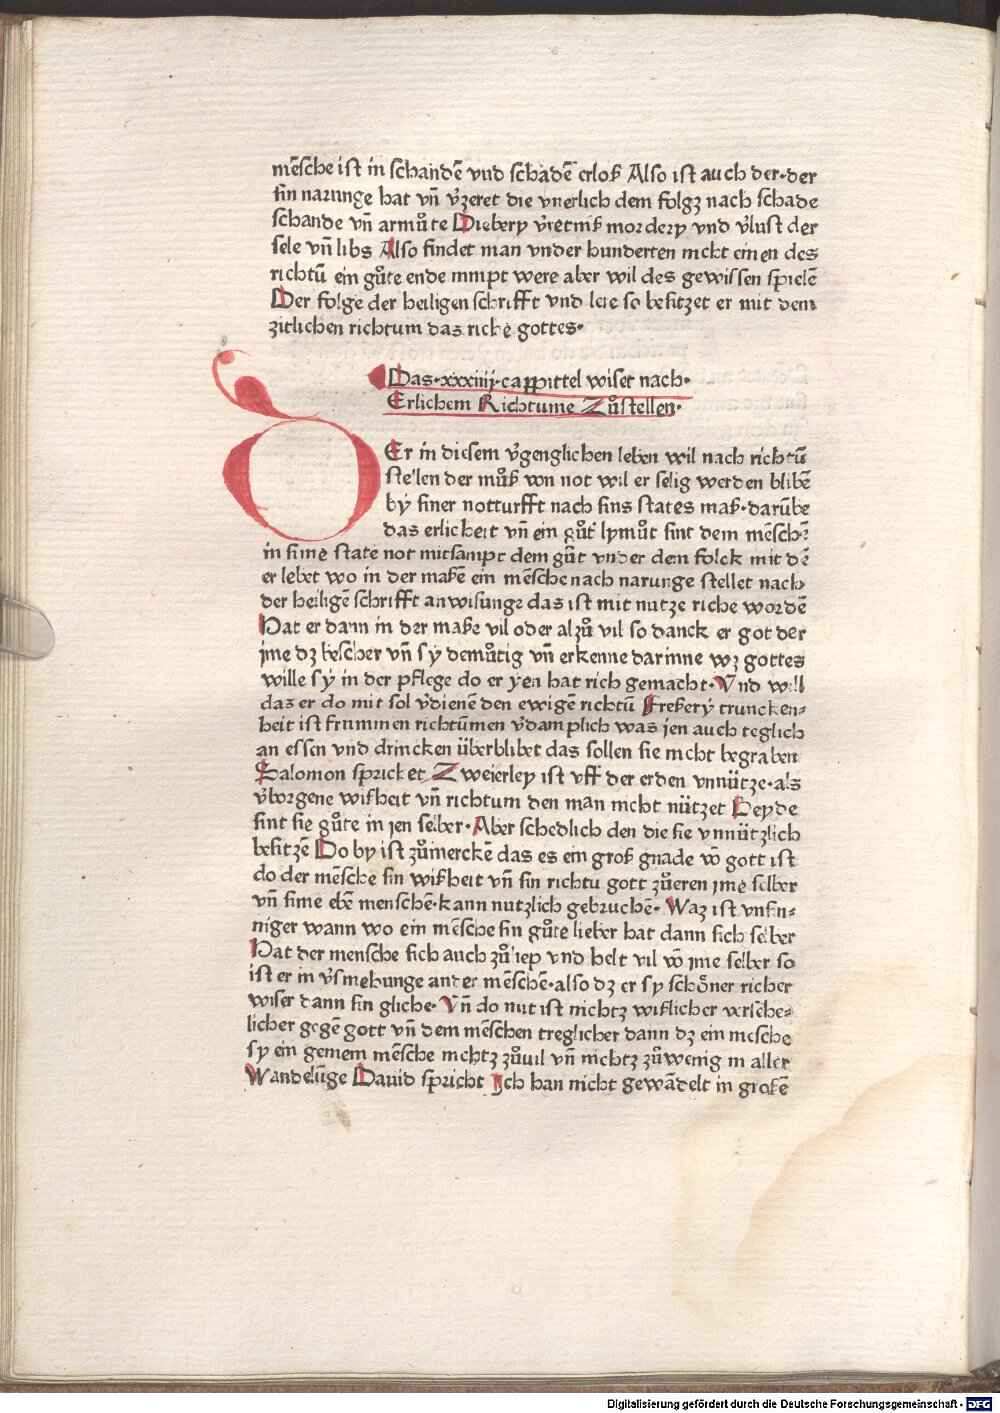 mēsche ist in schandē vnd schadē erloß Also ist auch der·der
sin narunge hat vn̄ v̄zeret die vnerlich dem folgꝫ nach schade
schande vn̄ armůte Diebery v̄retniß mordery vnd v̄lust der
sele vn̄ libs Also findet man vnder hunderten nicht einen des
richtū ein gůte ende nimpt were aber wil des gewissen spielē
Der folge der heiligen schrifft vnd lere so besitzet er mit dem
zitlichen richtum das riche gottes·
Das·xxxiiij·cappittel wiset nach·
Erlichem Richtume Zůstellen·
DEr in diesem v̄genglichen leben wil nach richtū
stellen der můß von not wil er selig werden blibē
by siner notturfft nach sins states maß·darūbe
das erlicheit vn̄ ein gůt lymůt sint dem mēschē
in simē state not mitsampt dem gůt vnder dem folck mit dē
er lebet wo in der maßē ein mēsche nach narunge stellet nach
der heiligē schrifft anwisunge das ist mit nutze riche wordē
Hat er dann in der maße vil oder alzů vil so danck er got der
jme dꝫ bescher vn̄ sy demůtig vn̄ erkenne darinne wꝫ gottes
wille sy in der pflege do er yen hat rich gemacht·Vnd will
das er do mit sol v̄dienē den ewigē richtū Freßery truncken-
heit ist frummen richtūmen v̄damplich was jen auch teglich
an essen vnd drincken überblibet das sollen sie nicht begraben
Salomon sprichet Zweierley ist vff der erden vnnütze·als
v̄borgene wißheit vn̄ richtum den man nicht nützet Beyde
sint sie gůte in jen selber·Aber schedlich den die sie vnnützlich
besitzē Do by ist zůmerckē das es ein groß gnade vō gott ist
do der mēsche sin wißheit vn̄ sin richtū gott zůeren jme selber
vn̄ sime ebē menschē·kann nutzlich gebruchē·Waz ist vnsin-
niger wann wo ein mēsche sin gůte lieber hat dann sich selber
Hat der mensche sich auch zů liep vnd helt vil vō jme selber so
ist er in v̄smehunge ander mēschē·also dꝫ er sy schöner richer
wiser dann sin gliche·Vn̄ do mit ist nichtz wißlicher verschē-
licher gegē gott vn̄ dem mēschen treglicher dann dꝫ ein mēsche
sy ein gemein mēsche nichtz zůuil vn̄ nichtz zůwenig in aller
Wandelūge Dauid spricht Ich han nicht gewādelt in großē
Digitalisierung gefördert durch die Deutsche Forschungsgemeinschaft · DFG